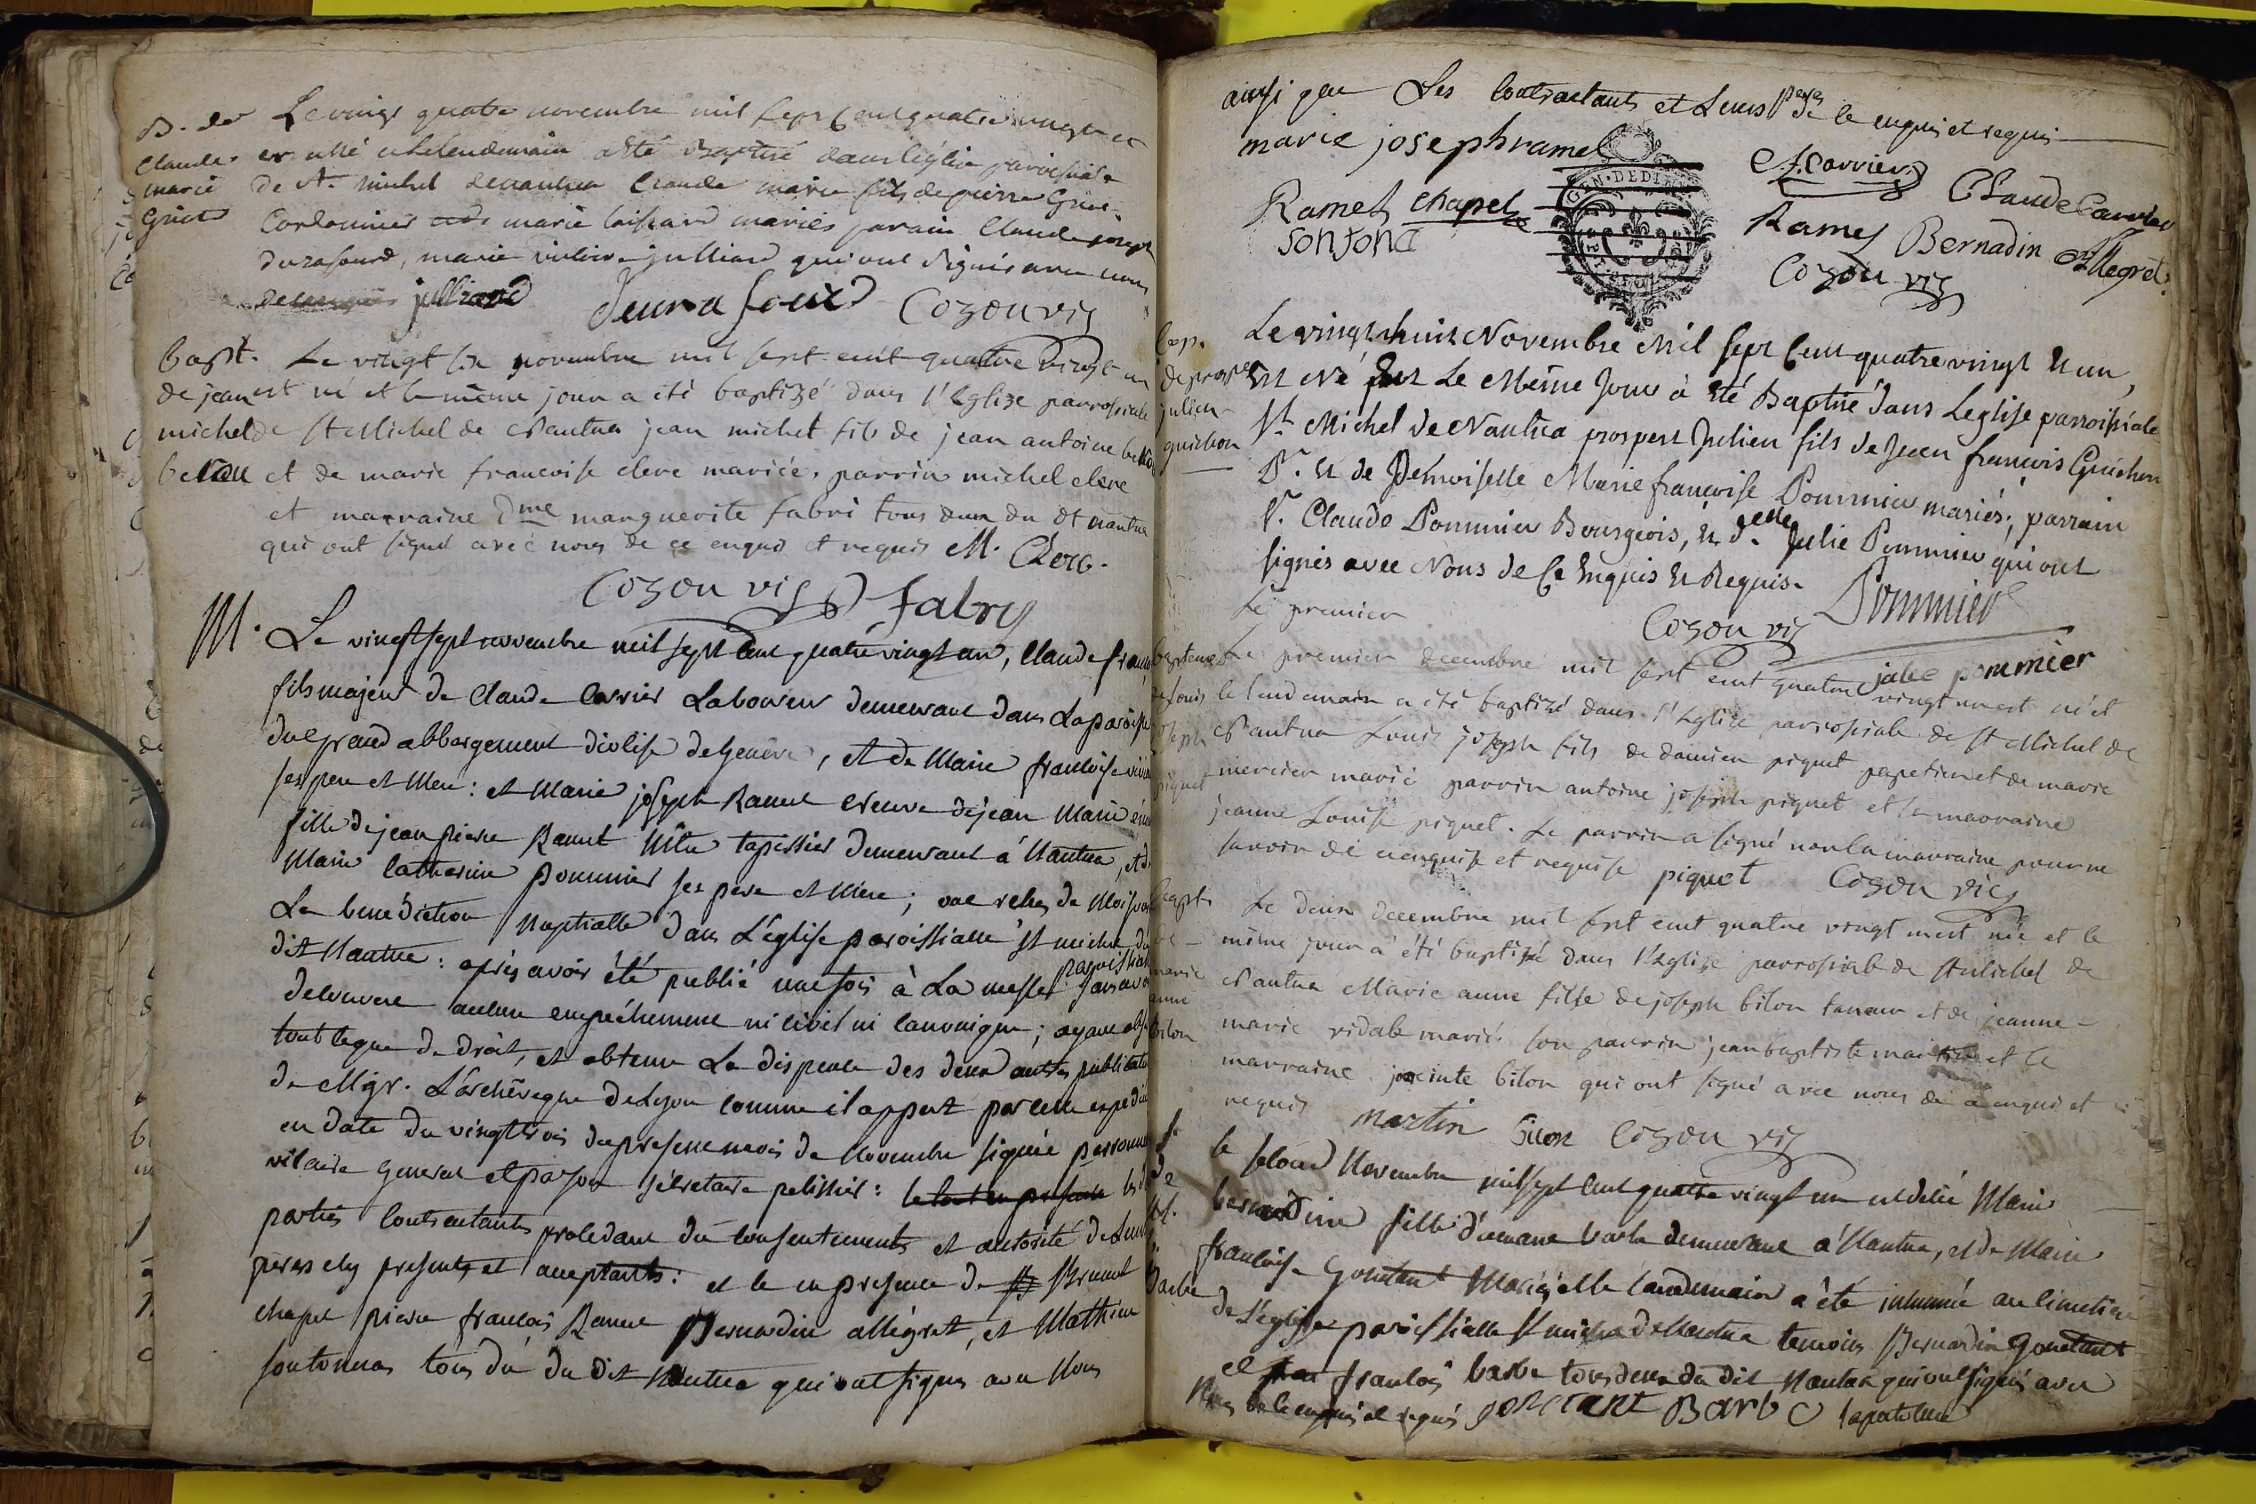 B. de
Claude
marie
Grict
Le vingt quatre novembre mil sept cent quatre vingt un
est né et le lendemain a été Baptisé dans l'églie paroissiale
de st. michel denantua Claude marie fils de pierre
Cordonnier marie mariés parain Claude joseph
durafourd, marie julliard qui ont signés avec nous
julliard Cozon vic
bapt.
de jean
michel
Le vingt six novembre mil sept cent quatre vingt un
est né et le même jour a été baptizé dans l'Eglize parrossiale
de st Michel de Nantua jean michel fils de jean antoine
et de marie francoise clerc mariés, parrin michel clerc
et marraine dme marguerite fabri tous deux du dt nantua
qui ont signé avec nous de ce enquis et requis M. Clerc.
Cozon vic fabry
M.
Le vingt sept novembre mil sept cent quatre vingt un, Claude
fils majeur de Claude Carrier Laboureur demeurant dans La paroisse
du grand abbergement diolise de Genève, et de Marie francoise
ses pere et Mere : et Marie joseph Ramel veuve de jean Marie
fille de jean pierre Ramel Mtre tapissier demeurant à Nantua, et de
Marie Catherine pommier ses pere et Mere ; ont reçu de Moi
La benediction Nuptialle dans L'eglise paroissialle st michel du
dit Nantua : après avoir été publié une fois à La messe paroissiale sans avoir
decouvert aucun empéchement ni civil ni canonique ; ayant
tout ce que de droit, et obtenu La dispense des deux autres publications
de Mgr. L'archevêque de Lyon comme il appert par
en date du vingt trois du present mois de Novembre signée
vicaire general et par son sécretaire pelissier : le tout en presence les
parties contractants procedant du consentements et autorité de leurs
peres cy presents et acceptants : et le en presence de Brunet
chapel pierre francois Ramel Bernardin allégret, et Mathieu
sontonnas tous du du dit Nantua qui ont signés avec Nous
ainsi que Les Contractants et Leurs peres de ce enquis et requis
marie joseph ramel
C. f. Carrier
Claude Carrier
Ramel chapel
Ramel Bernadin Allegret
Sonton
Cozon vic
GEN · DEDI
bap.
de prosper
julien
guichon
Le vingt huit Novembre Mil sept Cent quatre vingt et un,
Est Né Et Le Même Jour à Eté Baptisé Dans Leglise parroissiale
St. Michel de Nantua prosper Julien fils de Jean francois Guichon
Br. Et de Demoiselle Marie francoise Pommier mariés ; parrain
Sr. Claude Pommier Bourgeois, Et delle Julie Pommier qui ont
signés avec Nous de Ce Enquis Et Requis.
Le premier
Cozon vic Pommier
julie pommier
bapteme
de louis
joseph
piquet
Le premier decembre mil sept cent quatre vingt un est né et
le lendemain a été baptizé dans l'Eglize parrossiale de st Michel de
Nantua Louis joseph fils de damien piquet papetier et de marie
mercier mariés parrin antoine joseph piquet et la marraine
jeanne Louise piquet. Le parrin a signé non la marraine pour ne
savoir de ce enquise et requise piquet Cozon vic
bapt.
de
marie
anne
bilon
Le deux decembre mil sept cent quatre vingt un est née et le
même jour a été baptizé dans l'Eglize parrossiale de st Michel de
Nantua Marie anne fille de joseph bilon tanneur et de jeanne
marie vidal mariés son parrin jean baptiste martin et la
marraine jacinte bilon qui ont signé avec nous de ce enquis et
requis martin Cozon vic
le second Novembre mil sept Cent quatre vingt un est decedée Marie
bernardine fille barbe demeurant à Nantua, et de Marie
francoise Gonctant Mariés, et le lendemain a été inhumée au cimetière
de L'église paroissialle st michel de Nantua temoins Bernardin Gonctant
et francois barbe tous deux du dit Nantua qui ont signés avec
Nous de ce enquis et requis goncctant Barbe